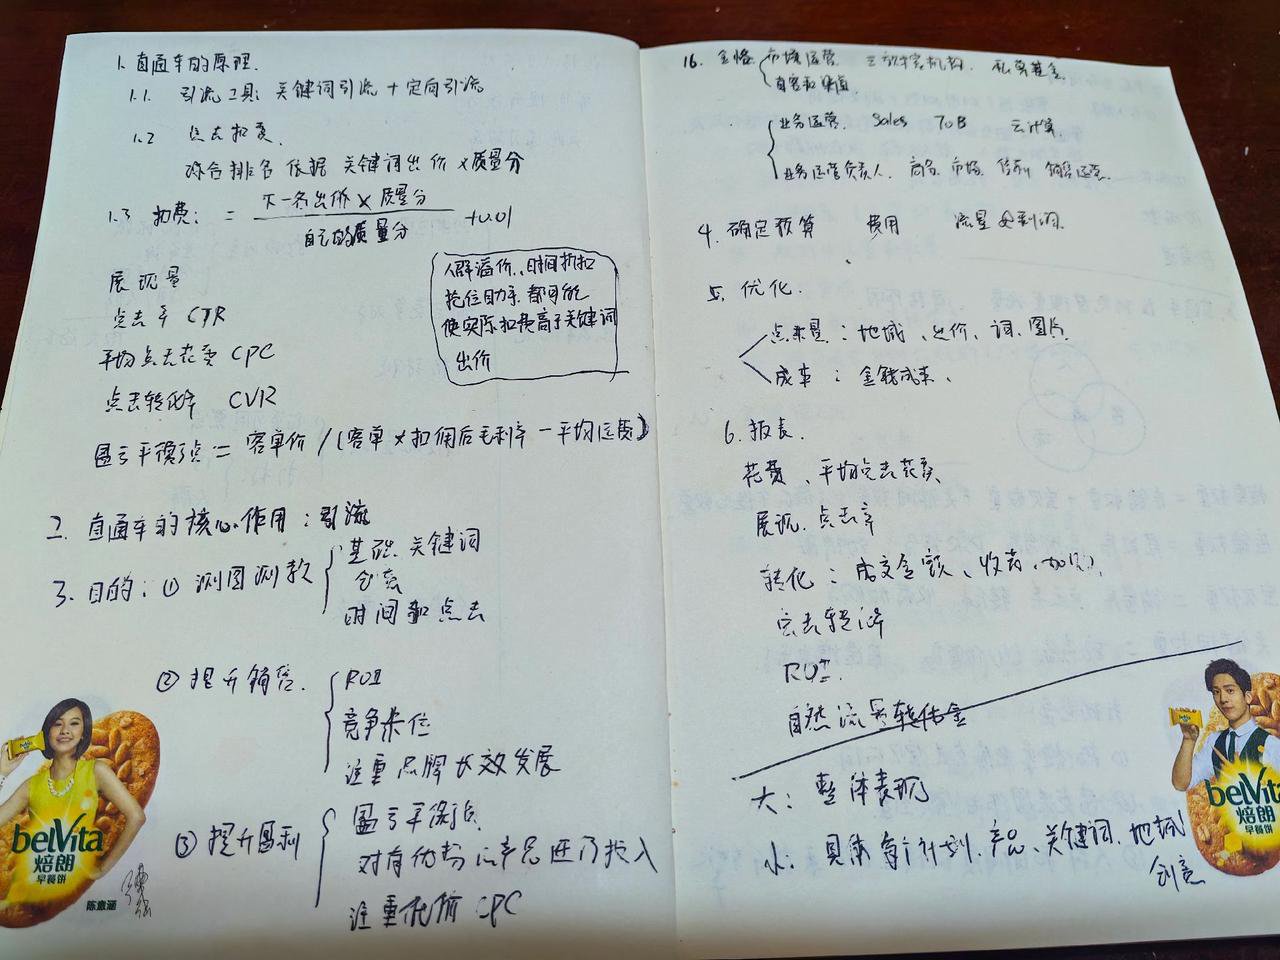 1. 直通车的原理.
1.1. 引流工具: 关键词引流 + 定向引流
1.2 点击扣费.
综合排名 依据 关键词出价 x 质量分
1.3 扣费: = 下一名出价 x 质量分 / 自己的质量分 +0.01
人群溢价、时间折扣
抢位助手 都可能
使实际扣费高于关键词
出价
展现量
点击率 CTR
平均点击花费 CPC
点击转化率 CVR
盈亏平衡点 = 客单价 / (客单 x 扣佣后毛利率 - 平均运费)
2. 直通车的核心作用: 引流
3. 目的: ① 测图测款
基础. 关键词
创意
时间和点击
② 提升销售.
ROI
竞争卡位
注重品牌长效发展
③ 提升盈利
盈亏平衡点.
对有优势的产品进行投入
注重 CPC
belVita
焙朗
早餐饼
陈意涵
16. 市场运营 私募基金.
业务运营. Sales TOB 云计算.
业务运营负责人. 商务. 市场.
4. 确定预算 费用 流量
5. 优化.
点击量: 地域、出价、词、图片
成本:
6. 报表.
花费、平均点击花费
展现. 点击率
转化: 成交金额、收藏、加购.
点击转化率
ROI.
自然流量转化金
大: 整体表现
小: 具体每个计划、产品、关键词、地域
创意
belVita
焙朗
早餐饼